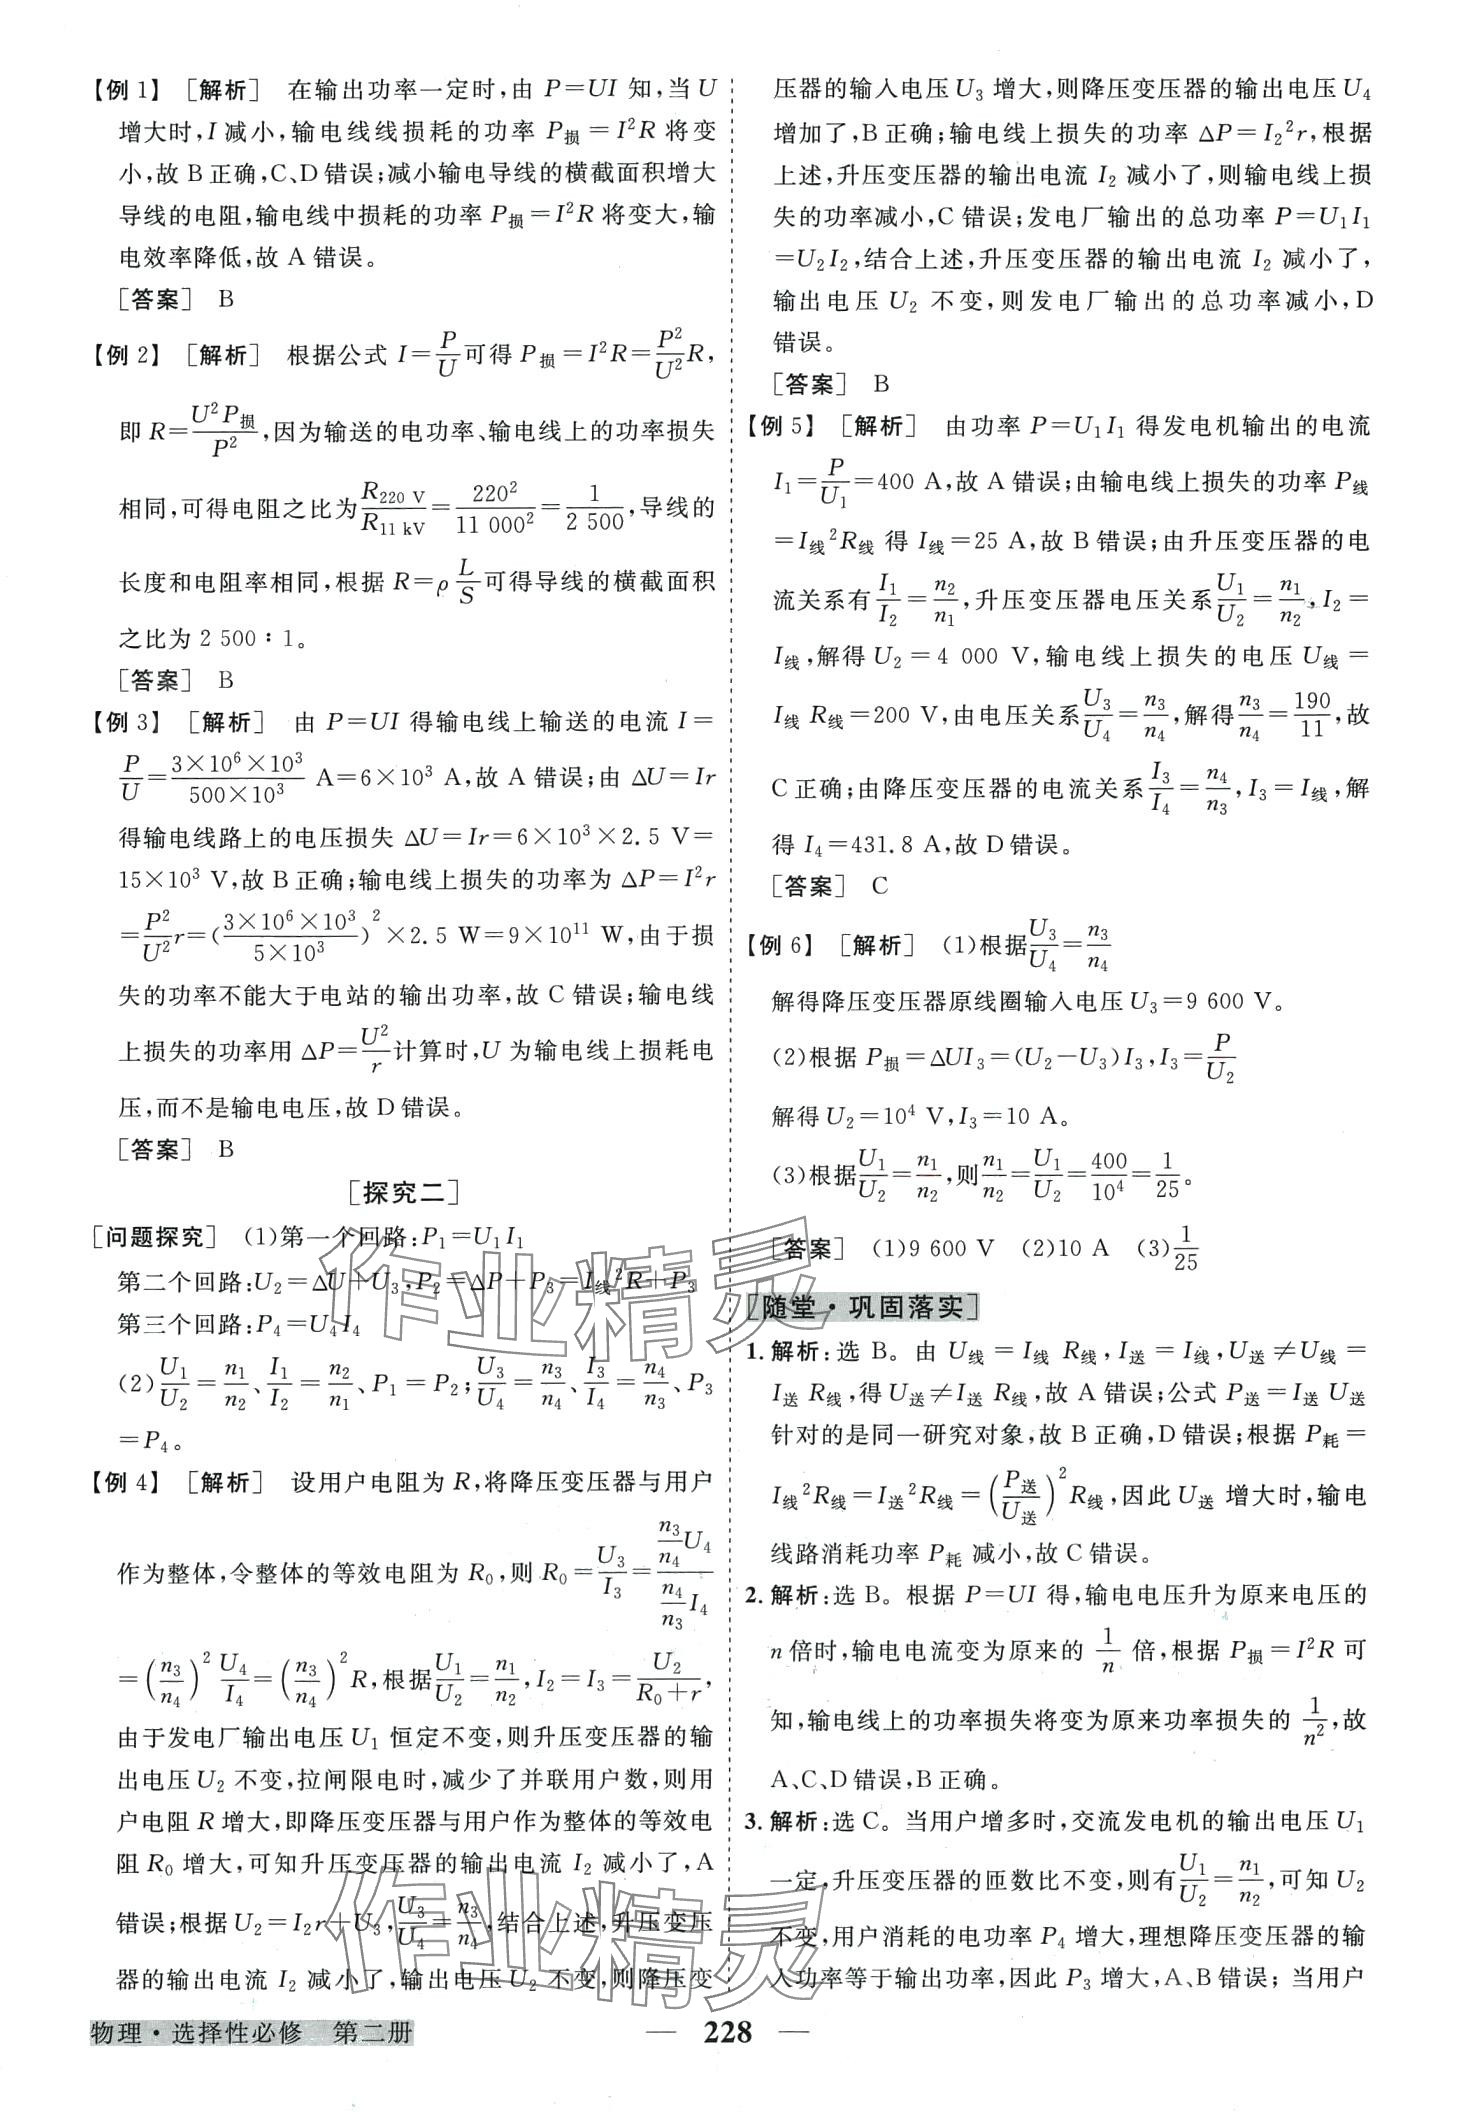 【例 1】 [解析] 在输出功率一定时,由 P=UI 知,当 U
增大时,I 减小,输电线线损耗的功率 P损=I²R 将变
小,故 B 正确,C、D 错误;减小输电导线的横截面积增大
导线的电阻,输电线中损耗的功率 P损=I²R 将变大,输
电效率降低,故 A 错误。
[答案] B
【例 2】 [解析] 根据公式 I=P/U 可得 P损=I²R=P²/U² R,
即 R=U²P损/P²,因为输送的电功率、输电线上的功率损失
相同,可得电阻之比为 R220 V/R11 kV=220²/11 000²=1/2 500,导线的
长度和电阻率相同,根据 R=ρ L/S 可得导线的横截面积
之比为 2 500∶1。
[答案] B
【例 3】 [解析] 由 P=UI 得输电线上输送的电流 I=
P/U=3×10⁶×10³/500×10³ A=6×10³ A,故 A 错误;由 ΔU=Ir
得输电线路上的电压损失 ΔU=Ir=6×10³×2.5 V=
15×10³ V,故 B 正确;输电线上损失的功率为 ΔP=I²r
=P²/U² r=(3×10⁶×10³/5×10³)²×2.5 W=9×10¹¹ W,由于损
失的功率不能大于电站的输出功率,故 C 错误;输电线
上损失的功率用 ΔP=U²/r 计算时,U 为输电线上损耗电
压,而不是输电电压,故 D 错误。
[答案] B
[探究二]
[问题探究] (1)第一个回路:P₁=U₁I₁
第二个回路:U₂=ΔU+U₃,P₂=ΔP+P₃=I线²R+P₃
第三个回路:P₄=U₄I₄
(2)U₁/U₂=n₁/n₂、I₁/I₂=n₂/n₁、P₁=P₂;U₃/U₄=n₃/n₄、I₃/I₄=n₄/n₃、P₃
=P₄。
【例 4】 [解析] 设用户电阻为 R,将降压变压器与用户
作为整体,令整体的等效电阻为 R₀,则 R₀=U₃/I₃=(n₃/n₄ U₄)/(n₄/n₃ I₄)
=(n₃/n₄)² U₄/I₄=(n₃/n₄)² R,根据 U₁/U₂=n₁/n₂,I₂=I₃=U₂/(R₀+r),
由于发电厂输出电压 U₁ 恒定不变,则升压变压器的输
出电压 U₂ 不变,拉闸限电时,减少了并联用户数,则用
户电阻 R 增大,即降压变压器与用户作为整体的等效电
阻 R₀ 增大,可知升压变压器的输出电流 I₂ 减小了,A
错误;根据 U₂=I₂r+U₃,U₃/U₄=n₃/n₄,结合上述,升压变压
器的输出电流 I₂ 减小了,输出电压 U₂ 不变,则降压变
压器的输入电压 U₃ 增大,则降压变压器的输出电压 U₄
增加了,B 正确;输电线上损失的功率 ΔP=I₂²r,根据
上述,升压变压器的输出电流 I₂ 减小了,则输电线上损
失的功率减小,C 错误;发电厂输出的总功率 P=U₁I₁
=U₂I₂,结合上述,升压变压器的输出电流 I₂ 减小了,
输出电压 U₂ 不变,则发电厂输出的总功率减小,D
错误。
[答案] B
【例 5】 [解析] 由功率 P=U₁I₁ 得发电机输出的电流
I₁=P/U₁=400 A,故 A 错误;由输电线上损失的功率 P线
=I线²R线 得 I线=25 A,故 B 错误;由升压变压器的电
流关系有 I₁/I₂=n₂/n₁,升压变压器电压关系 U₁/U₂=n₁/n₂,I₂=
I线,解得 U₂=4 000 V,输电线上损失的电压 U线=
I线 R线=200 V,由电压关系 U₃/U₄=n₃/n₄,解得 n₃/n₄=190/11,故
C 正确;由降压变压器的电流关系 I₃/I₄=n₄/n₃,I₃=I线,解
得 I₄=431.8 A,故 D 错误。
[答案] C
【例 6】 [解析] (1)根据 U₃/U₄=n₃/n₄
解得降压变压器原线圈输入电压 U₃=9 600 V。
(2)根据 P损=ΔUI₃=(U₂-U₃)I₃,I₃=P/U₂
解得 U₂=10⁴ V,I₃=10 A。
(3)根据 U₁/U₂=n₁/n₂,则 n₁/n₂=U₁/U₂=400/10⁴=1/25。
[答案] (1)9 600 V (2)10 A (3)1/25
[随堂·巩固落实]
1. 解析:选 B。由 U线=I线 R线,I送=I线,U送≠U线=
I送 R线,得 U送≠I送 R线,故 A 错误;公式 P送=I送 U送
针对的是同一研究对象,故 B 正确,D 错误;根据 P耗=
I线²R线=I送²R线=(P送/U送)² R线,因此 U送 增大时,输电
线路消耗功率 P耗 减小,故 C 错误。
2. 解析:选 B。根据 P=UI 得,输电电压升为原来电压的
n 倍时,输电电流变为原来的 1/n 倍,根据 P损=I²R 可
知,输电线上的功率损失将变为原来功率损失的 1/n²,故
A、C、D 错误,B 正确。
3. 解析:选 C。当用户增多时,交流发电机的输出电压 U₁
一定,升压变压器的匝数比不变,则有 U₁/U₂=n₁/n₂,可知 U₂
不变,用户消耗的电功率 P₄ 增大,理想降压变压器的输
入功率等于输出功率,因此 P₃ 增大,A、B 错误;当用户
作业精灵
作业精灵
物理·选择性必修 第二册
— 228 —